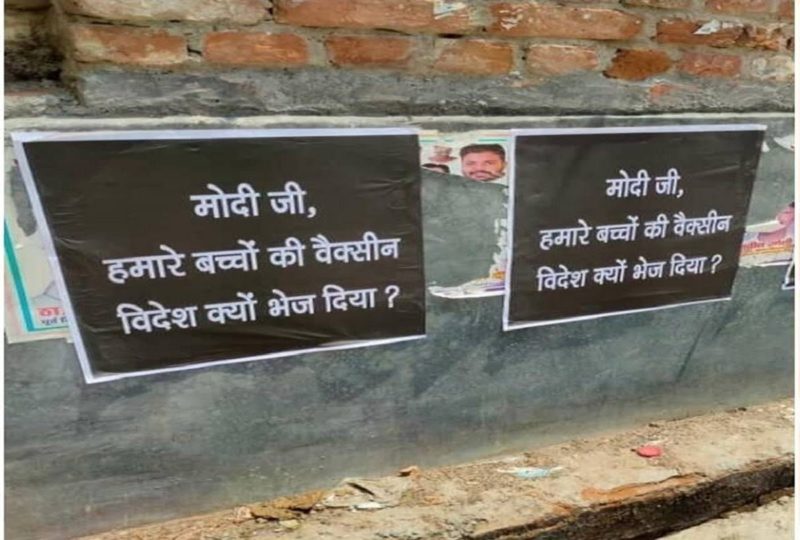 मोदी जी,
हमारे बच्चों की वैक्सीन
विदेश क्यों भेज दिया ?
मोदी जी,
हमारे बच्चों की वैक्सीन
विदेश क्यों भेज दिया ?